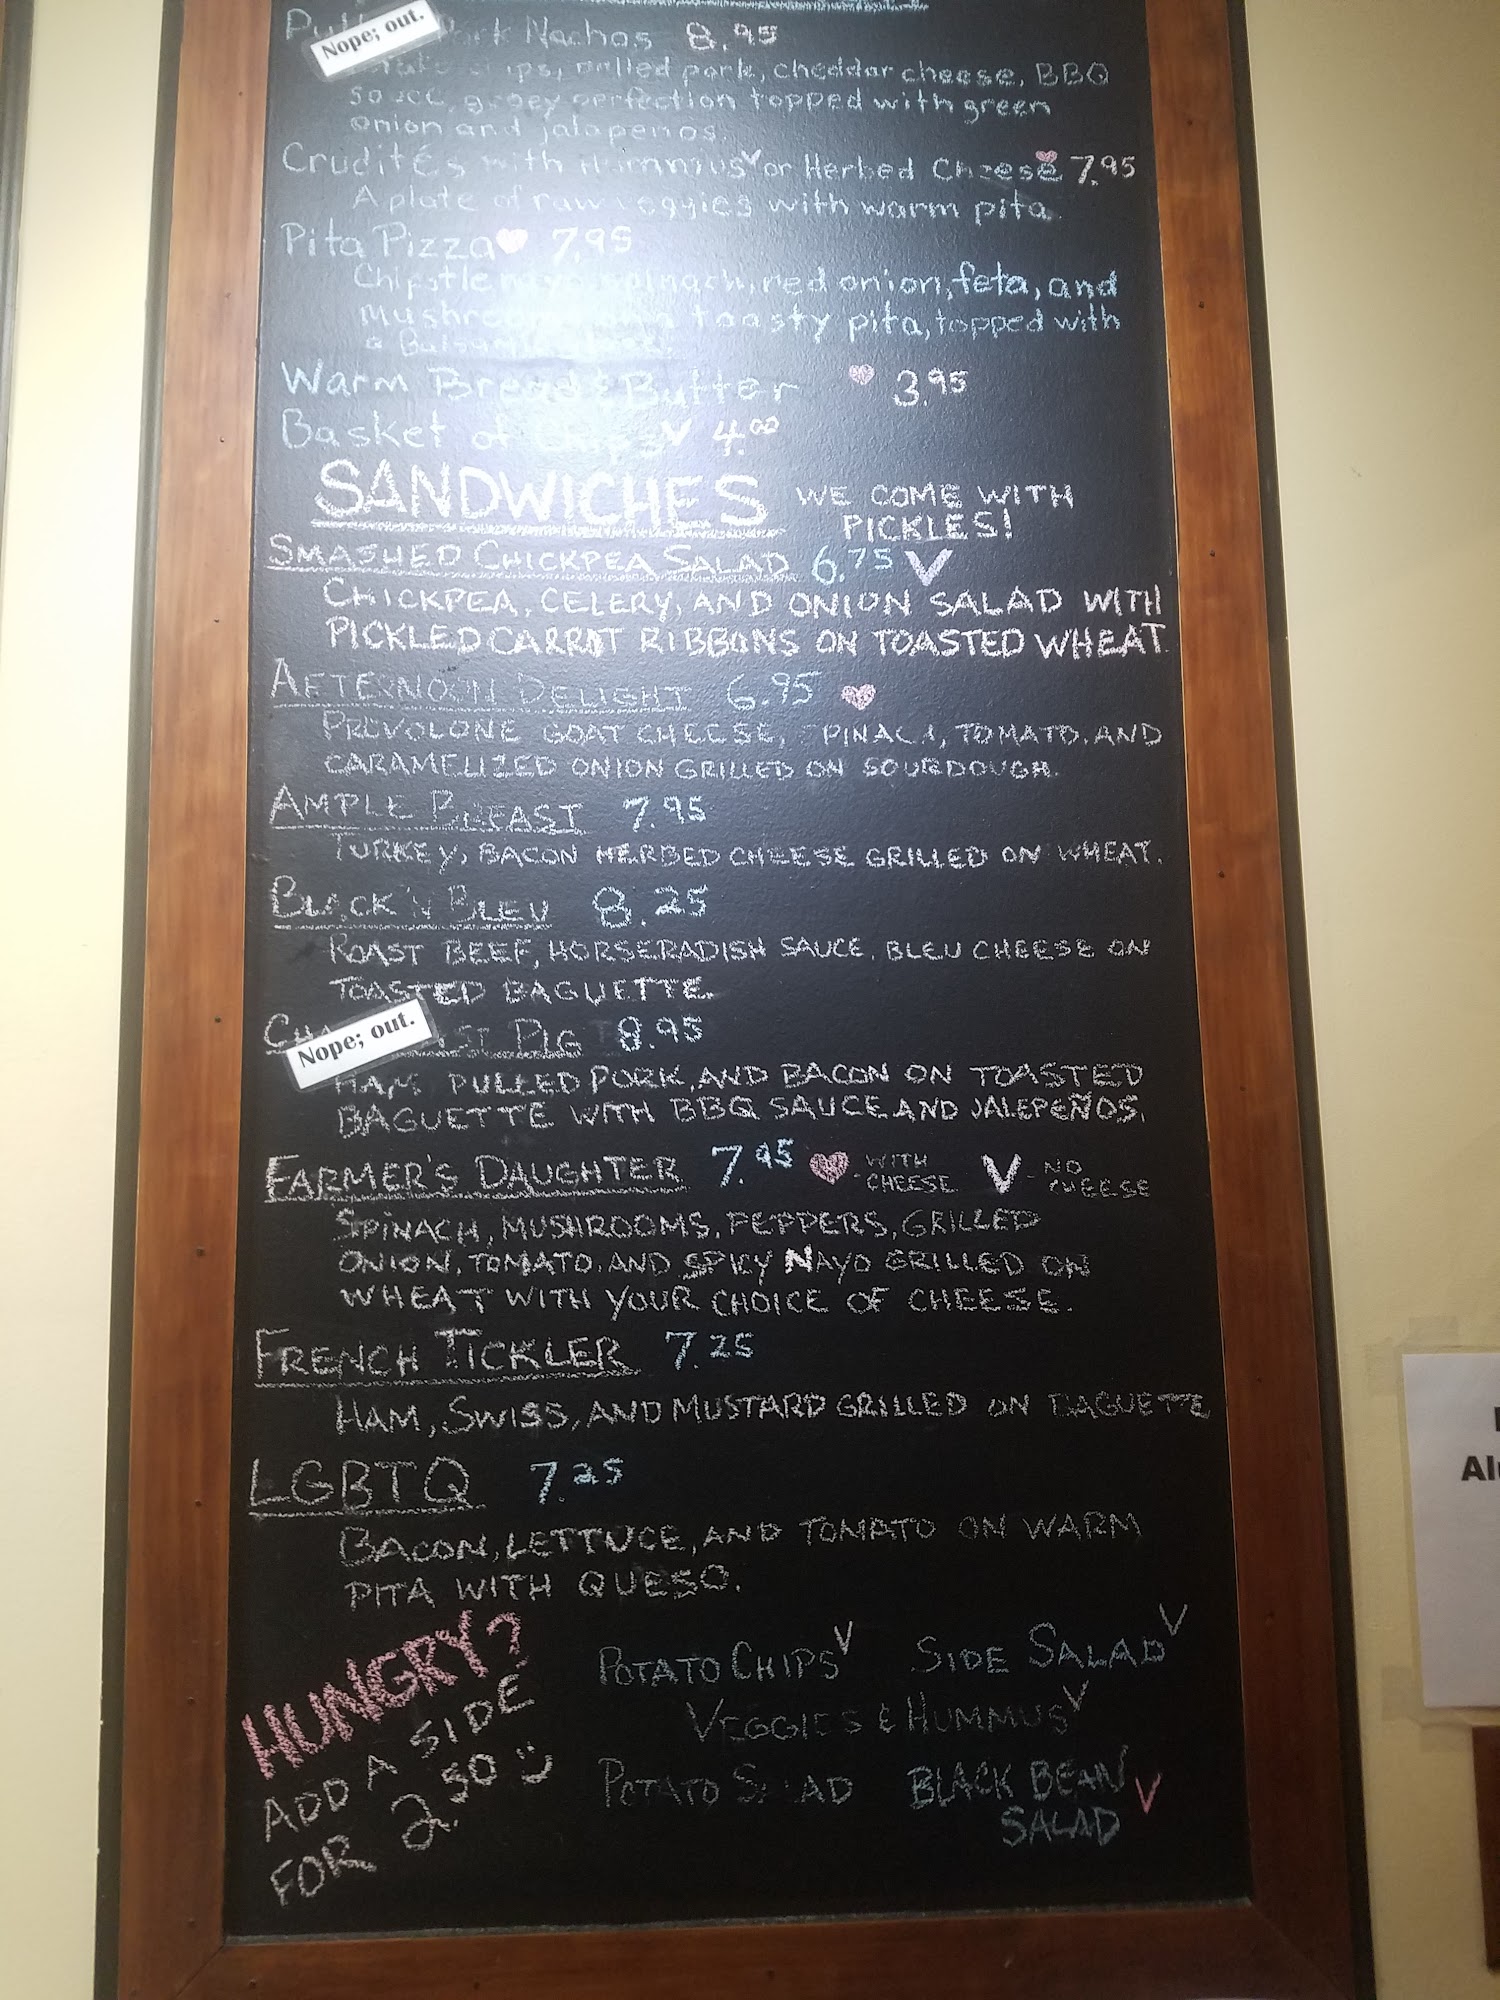 Nope; out.
Nachos 8.95
pulled pork, cheddar cheese, BBQ
perfection topped with green
onion and jalapenos.
Crudités with Hummus V or Herbed Cheese 7.95
A plate of raw veggies with warm pita
Pita Pizza 7.95
spinach, red onion, feta, and
toasty pita, topped with
a
Warm Bread & Butter 3.95
Basket of Chips V 4.00
SANDWICHES WE COME WITH
PICKLES!
SMASHED CHICKPEA SALAD 6.75 V
CHICKPEA, CELERY, AND ONION SALAD WITH
PICKLED CARROT RIBBONS ON TOASTED WHEAT.
AFTERNOON DELIGHT 6.95
PROVOLONE GOAT CHEESE, SPINACH, TOMATO, AND
CARAMELIZED ONION GRILLED ON SOURDOUGH.
AMPLE BREAST 7.95
TURKEY, BACON HERBED CHEESE GRILLED ON WHEAT.
BLACK 'N BLEU 8.25
ROAST BEEF, HORSERADISH SAUCE, BLEU CHEESE ON
TOASTED BAGUETTE.
Nope; out.
PIG 8.95
HAM, PULLED PORK, AND BACON ON TOASTED
BAGUETTE WITH BBQ SAUCE AND JALEPEÑOS.
FARMER'S DAUGHTER 7.95 - WITH CHEESE V - NO CHEESE
SPINACH, MUSHROOMS, PEPPERS, GRILLED
ONION, TOMATO, AND SPICY NAYO GRILLED ON
WHEAT WITH YOUR CHOICE OF CHEESE.
FRENCH TICKLER 7.25
HAM, SWISS, AND MUSTARD GRILLED ON BAGUETTE
LGBTQ 7.25
BACON, LETTUCE, AND TOMATO ON WARM
PITA WITH QUESO.
HUNGRY?
ADD A SIDE
FOR 2.50
POTATO CHIPS V SIDE SALAD V
VEGGIES & HUMMUS V
POTATO SALAD BLACK BEAN
SALAD V